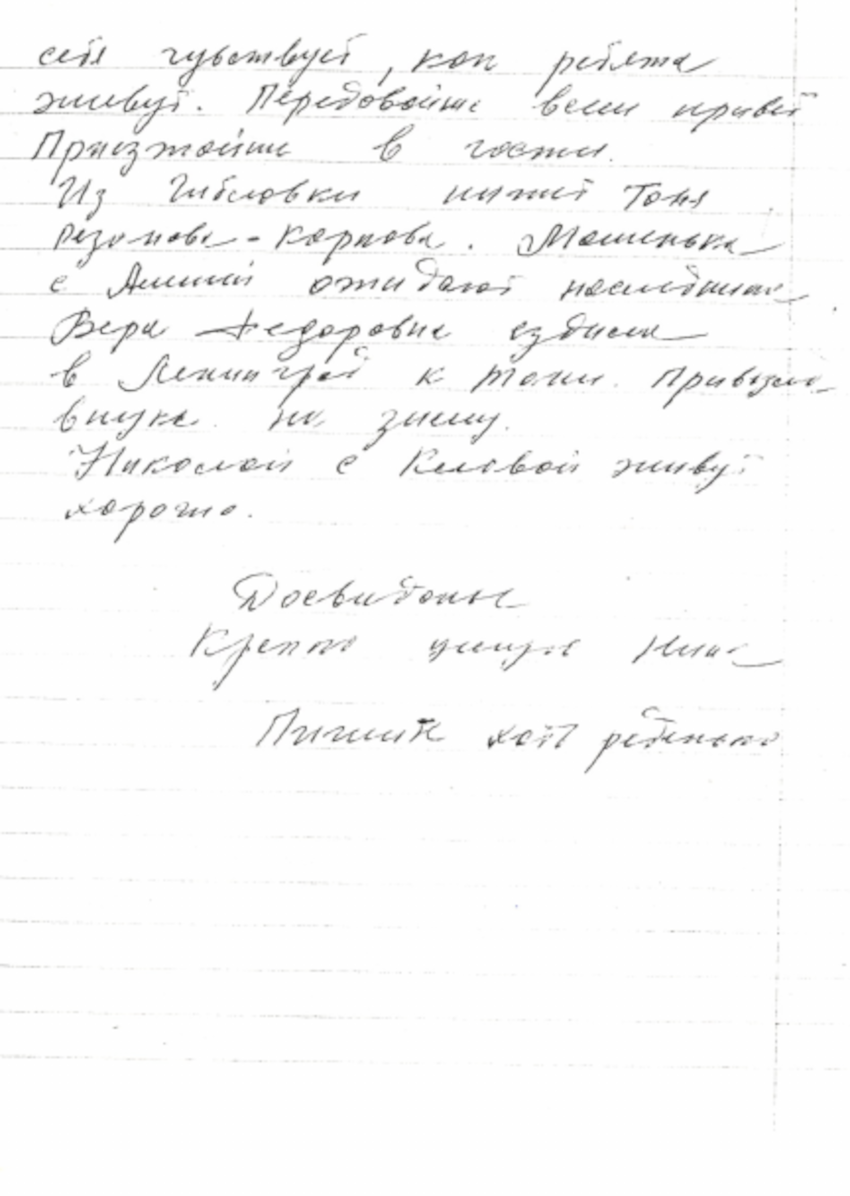 себя чувствует, как ребята
живут. Передавайте всем привет
Приезжайте в гости.
Из пишет Тоня
Резонова - Карпова. Машенька
с ожидают наследника
Вера Федоровна ездила
в Ленинград к Тони. Привезла
внука на зиму.
Николай с Клавой живут
хорошо.
Досвидание
Крепко целую Нина
Пишите хотя реденько